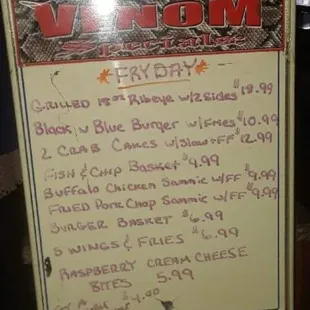 VENOM
Specials
*FRYDAY*
GRILLED 18oz Ribeye w/2 Sides $19.99
Black N Blue Burger w/FRIES $10.99
2 CRAB CAKES w/Slaw+FF $12.99
FISH & CHIP BASKET $9.99
Buffalo Chicken Sammie w/FF $9.99
FRIED PORK CHOP Sammie w/FF $9.99
BURGER BASKET $6.99
5 WINGS & FRIES $6.99
RASPBERRY CREAM CHEESE
BITES 5.99
$4.00